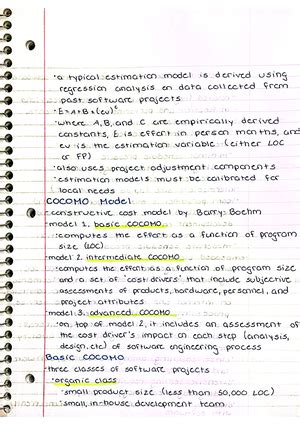 · a typical estimation model is derived using
regression analysis on data collected from
past software projects
· E = A + B × (ev)^C
· where A, B, and C are empirically derived
constants, E is effort in person months, and
ev is the estimation variable (either LOC
or FP)
· also uses project adjustment components
· estimation models must be calibrated for
local needs
COCOMO Model
· constructive cost model by Barry Boehm
· model 1. basic COCOMO
· computes the effort as a function of program
size (LOC)
· model 2. intermediate COCOMO
· computes the effort as a function of program size
and a set of "cost drivers" that include subjective
assessments of products, hardware, personnel, and
project attributes
· model 3. advanced COCOMO
· on top of model 2, it includes an assessment of
the cost driver's impact on each step (analysis,
design, etc) of software engineering process
Basic COCOMO
· three classes of software projects
· organic class
· small product size (less than 50,000 LOC)
· small, in-house development team